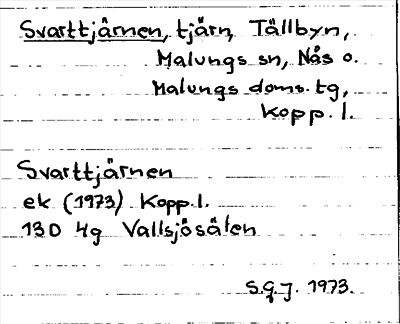 Svarttjärnen, tjärn, Tällbyn,
Malungs sn, Nås o.
Malungs doms. tg,
Kopp. l.
Svarttjärnen
ek (1973) Kopp. l.
13D 4g Vallsjösälen
S.G.J. 1973.